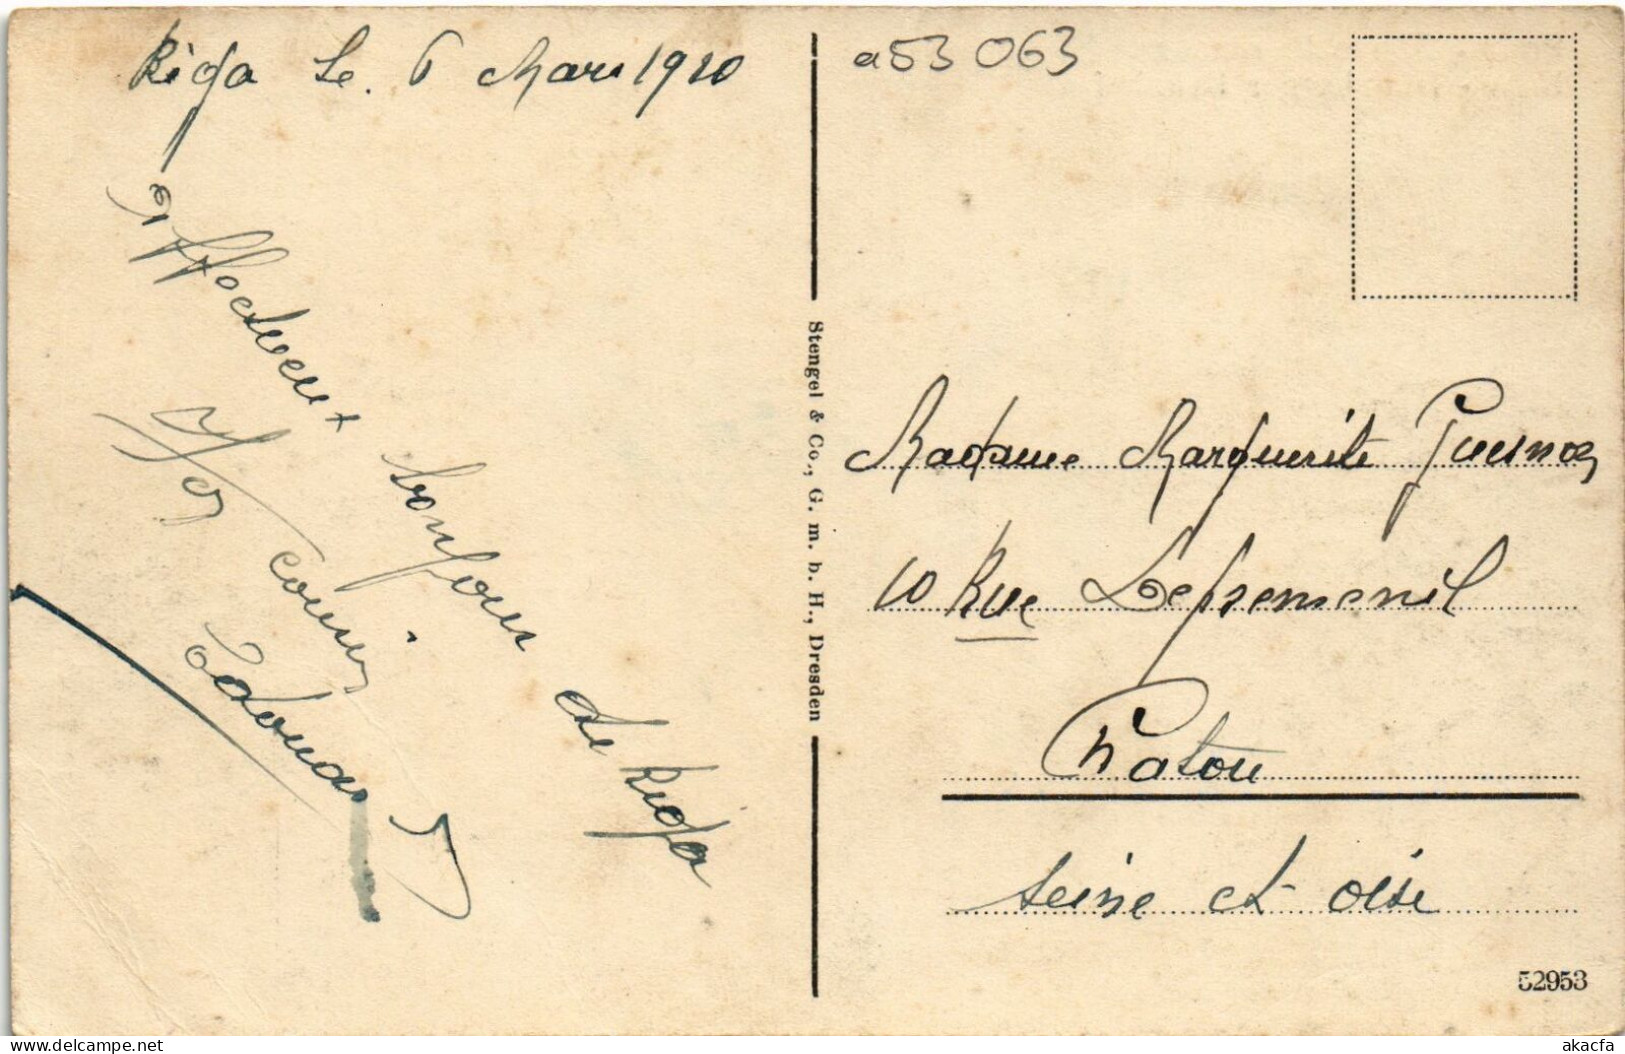 Riga le. 6 Mars 1920
Affectueux bonjour de Riga
Ton cousin
Edouard
a53 063
Stengel & Co., G. m. b. H., Dresden
Madame Marguerite
10 Rue Lepremenil
Chatou
Seine et Oise
52953
akacfa